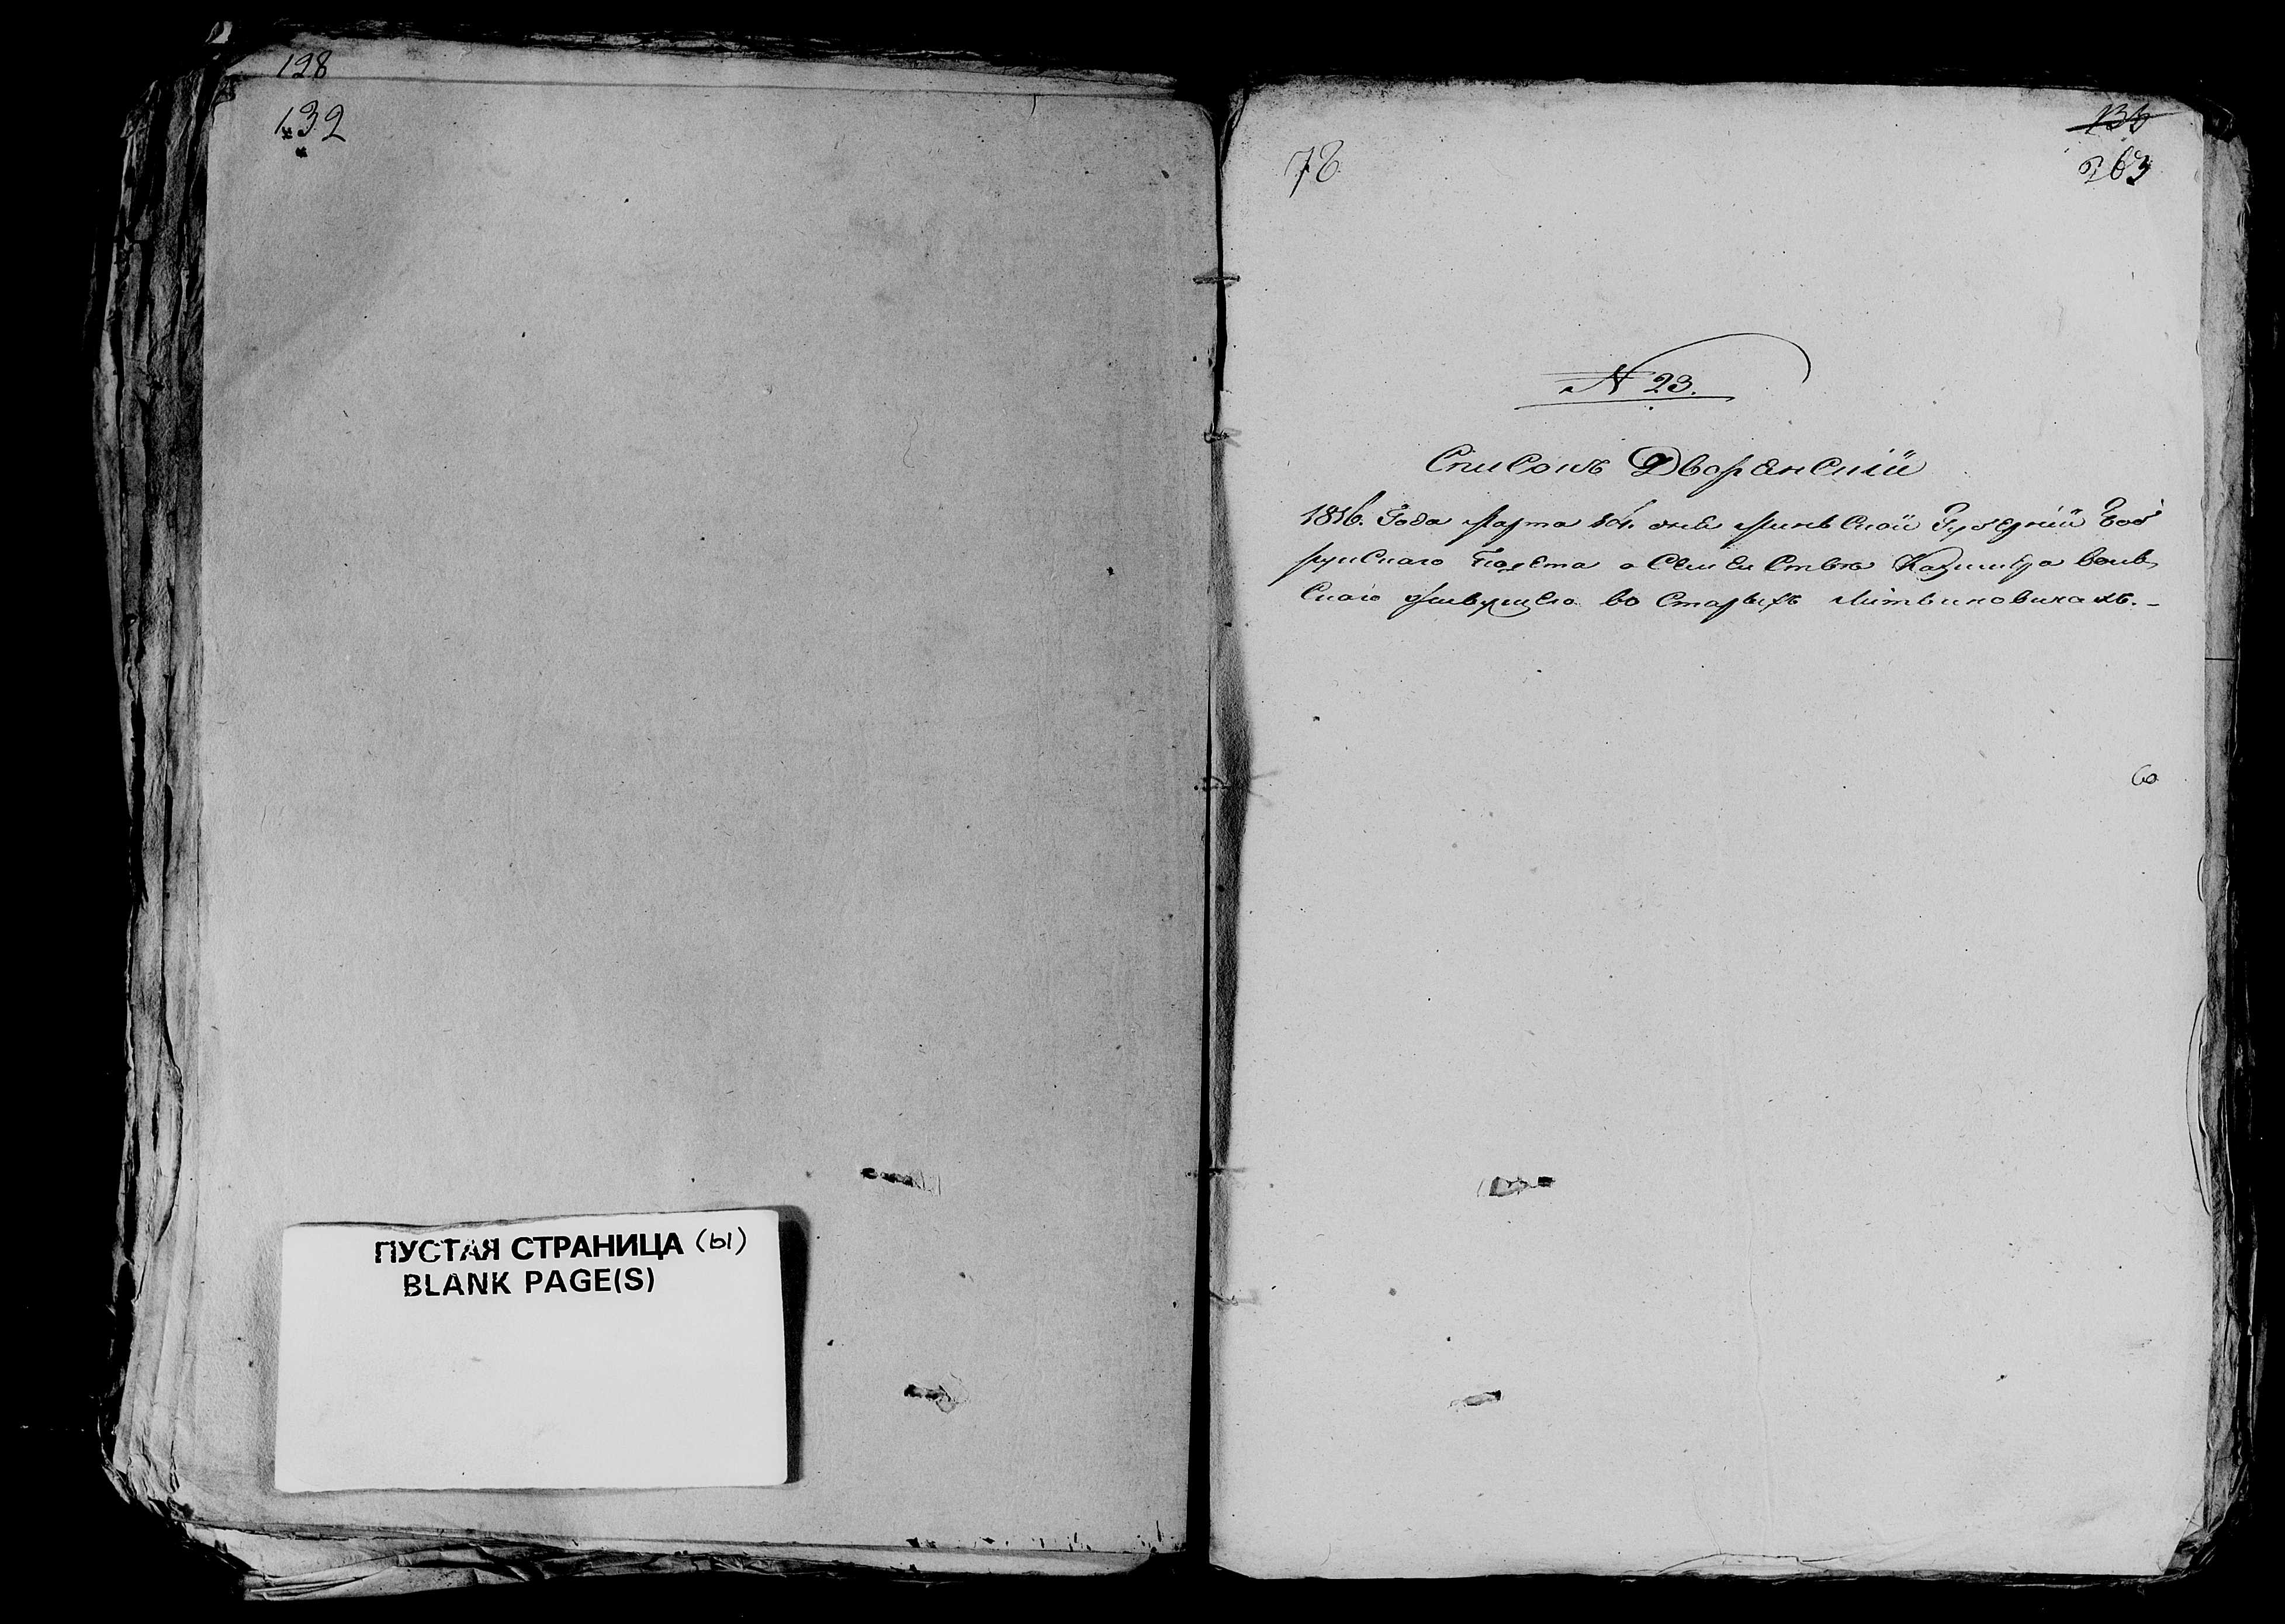 198
132
ПУСТАЯ СТРАНИЦА (ы)
BLANK PAGE(S)
78
136
263
N 23.
Списокъ Дворянскій
1816. Года Марта дня Минской Губерніи Боб
руйскаго Повета о Семействѣ Казимира
скаго живущего во Старыхъ Литвиновичахъ.-